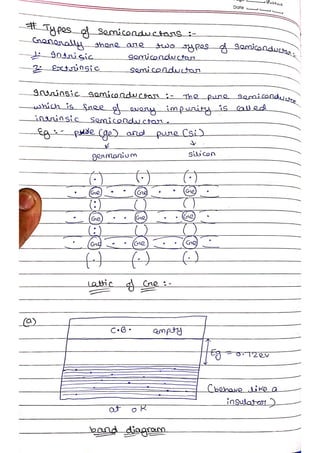 Date
# Types of Semiconductors :-
Generally there are two types of semiconductor:
1:- Intrisic semiconductor
2:- Extrinsic semiconductor
Intrinsic semiconductor :- The pure semiconductor
which is free of every impurity is called
intrinsic semiconductor.
Eg :- pure (ge) and pure (Si)
germanium silicon
Ge Ge Ge
Ge Ge Ge
Ge Ge Ge
lattic of Ge :-
(a)
C.B. empty
Eg = 0.72ev
(behave like a
insulator)
at 0K
band diagram